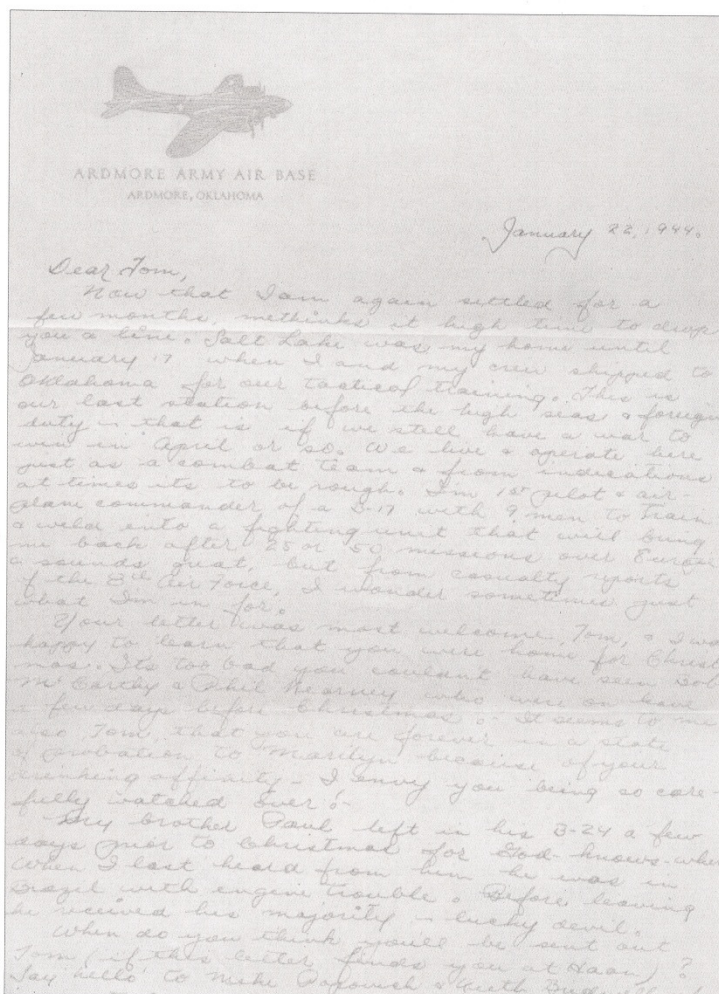 ARDMORE ARMY AIR BASE
ARDMORE, OKLAHOMA
January 22, 1944.
Dear Tom,
Now that I am again settled for a
few months, methinks it high time to drop
you a line. Salt Lake was my home until
January 17 when I and my crew shipped to
Oklahoma for our tactical training. This is
our last station before the high seas & foreign
duty - that is if we still have a war to
win in April or so. We live & operate here
just as a combat team & from indications
at times its to be rough. I'm 1st pilot & air-
plane commander of a B-17 with 9 men to train
& weld into a fighting unit that will bring
me back after 25 or 50 missions over Europe
& sounds great, but from casualty reports
of the 8th Air Force, I wonder sometimes just
what I'm in for.
Your letter was most welcome, Tom, & I was
happy to learn that you were home for Christ
mas. Its too bad you couldnt have seen Bob
McCarthy & Phil Kearney who were on leave
a few days before Christmas. It seems to me
also Tom, that you are forever in a state
of probation to Marilyn because of your
drinking affinity - I envy you being so care-
fully watched over!
My brother Paul left in his B-24 a few
days prior to Christmas for God-knows-where
When I last heard from him he was in
Brazil with engine trouble. Before leaving
he received his majority - lucky devil.
When do you think you'll be sent out
Tom (if this letter finds you at Haan)?
Say hello to Mike Popovich & Keith